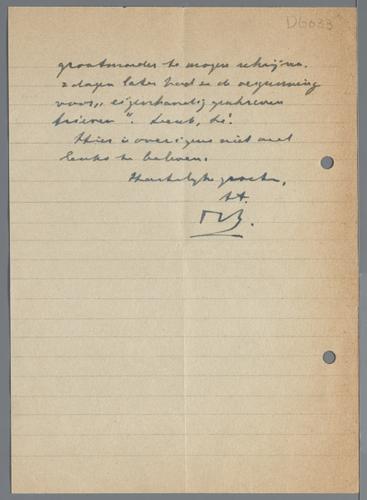 D6033
grootmoeder te mogen schrijven.
2 dagen later had ze de vergunning
voor „eigenhandig geschreven
brieven”. Leuk, hè!
Hier is overigens niet veel
leuks te beleven.
Hartelijke groeten,
tt.